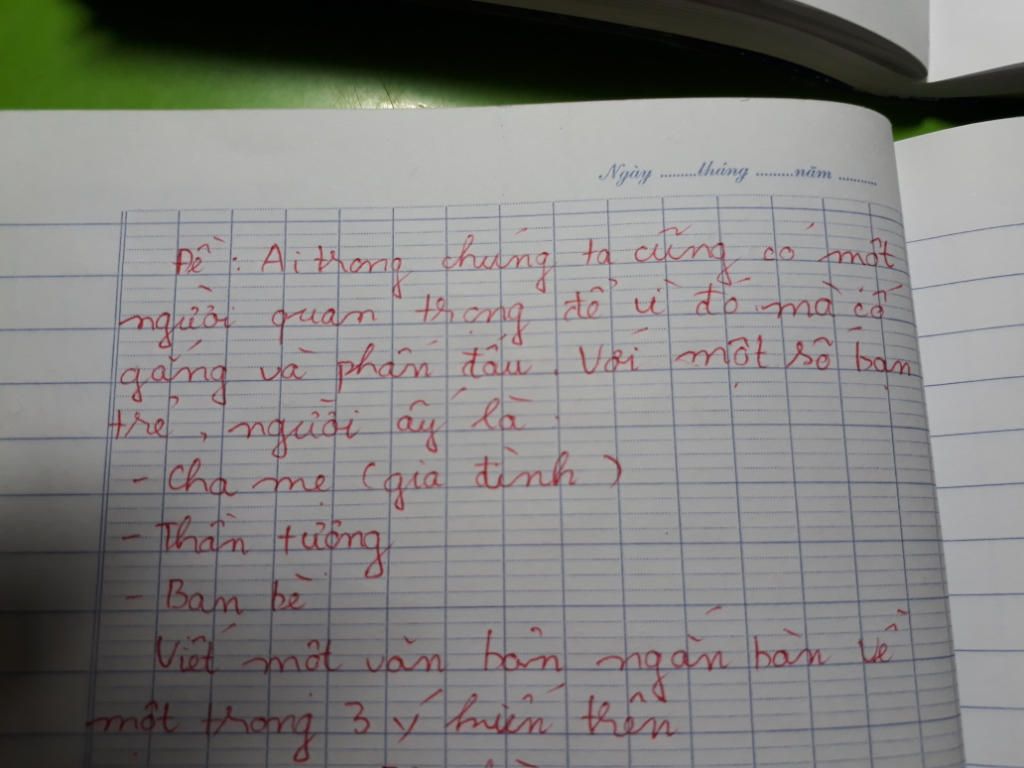 Ngày .........tháng .........năm .........
Đề : Ai trong chúng ta cũng có một
người quan trọng để vì đó mà cố
gắng và phấn đấu. Với một số bạn
trẻ, người ấy là
- Cha mẹ (gia đình)
- Thần tượng
- Bạn bè
Viết một văn bản ngắn bàn về
một trong 3 ý kiến trên